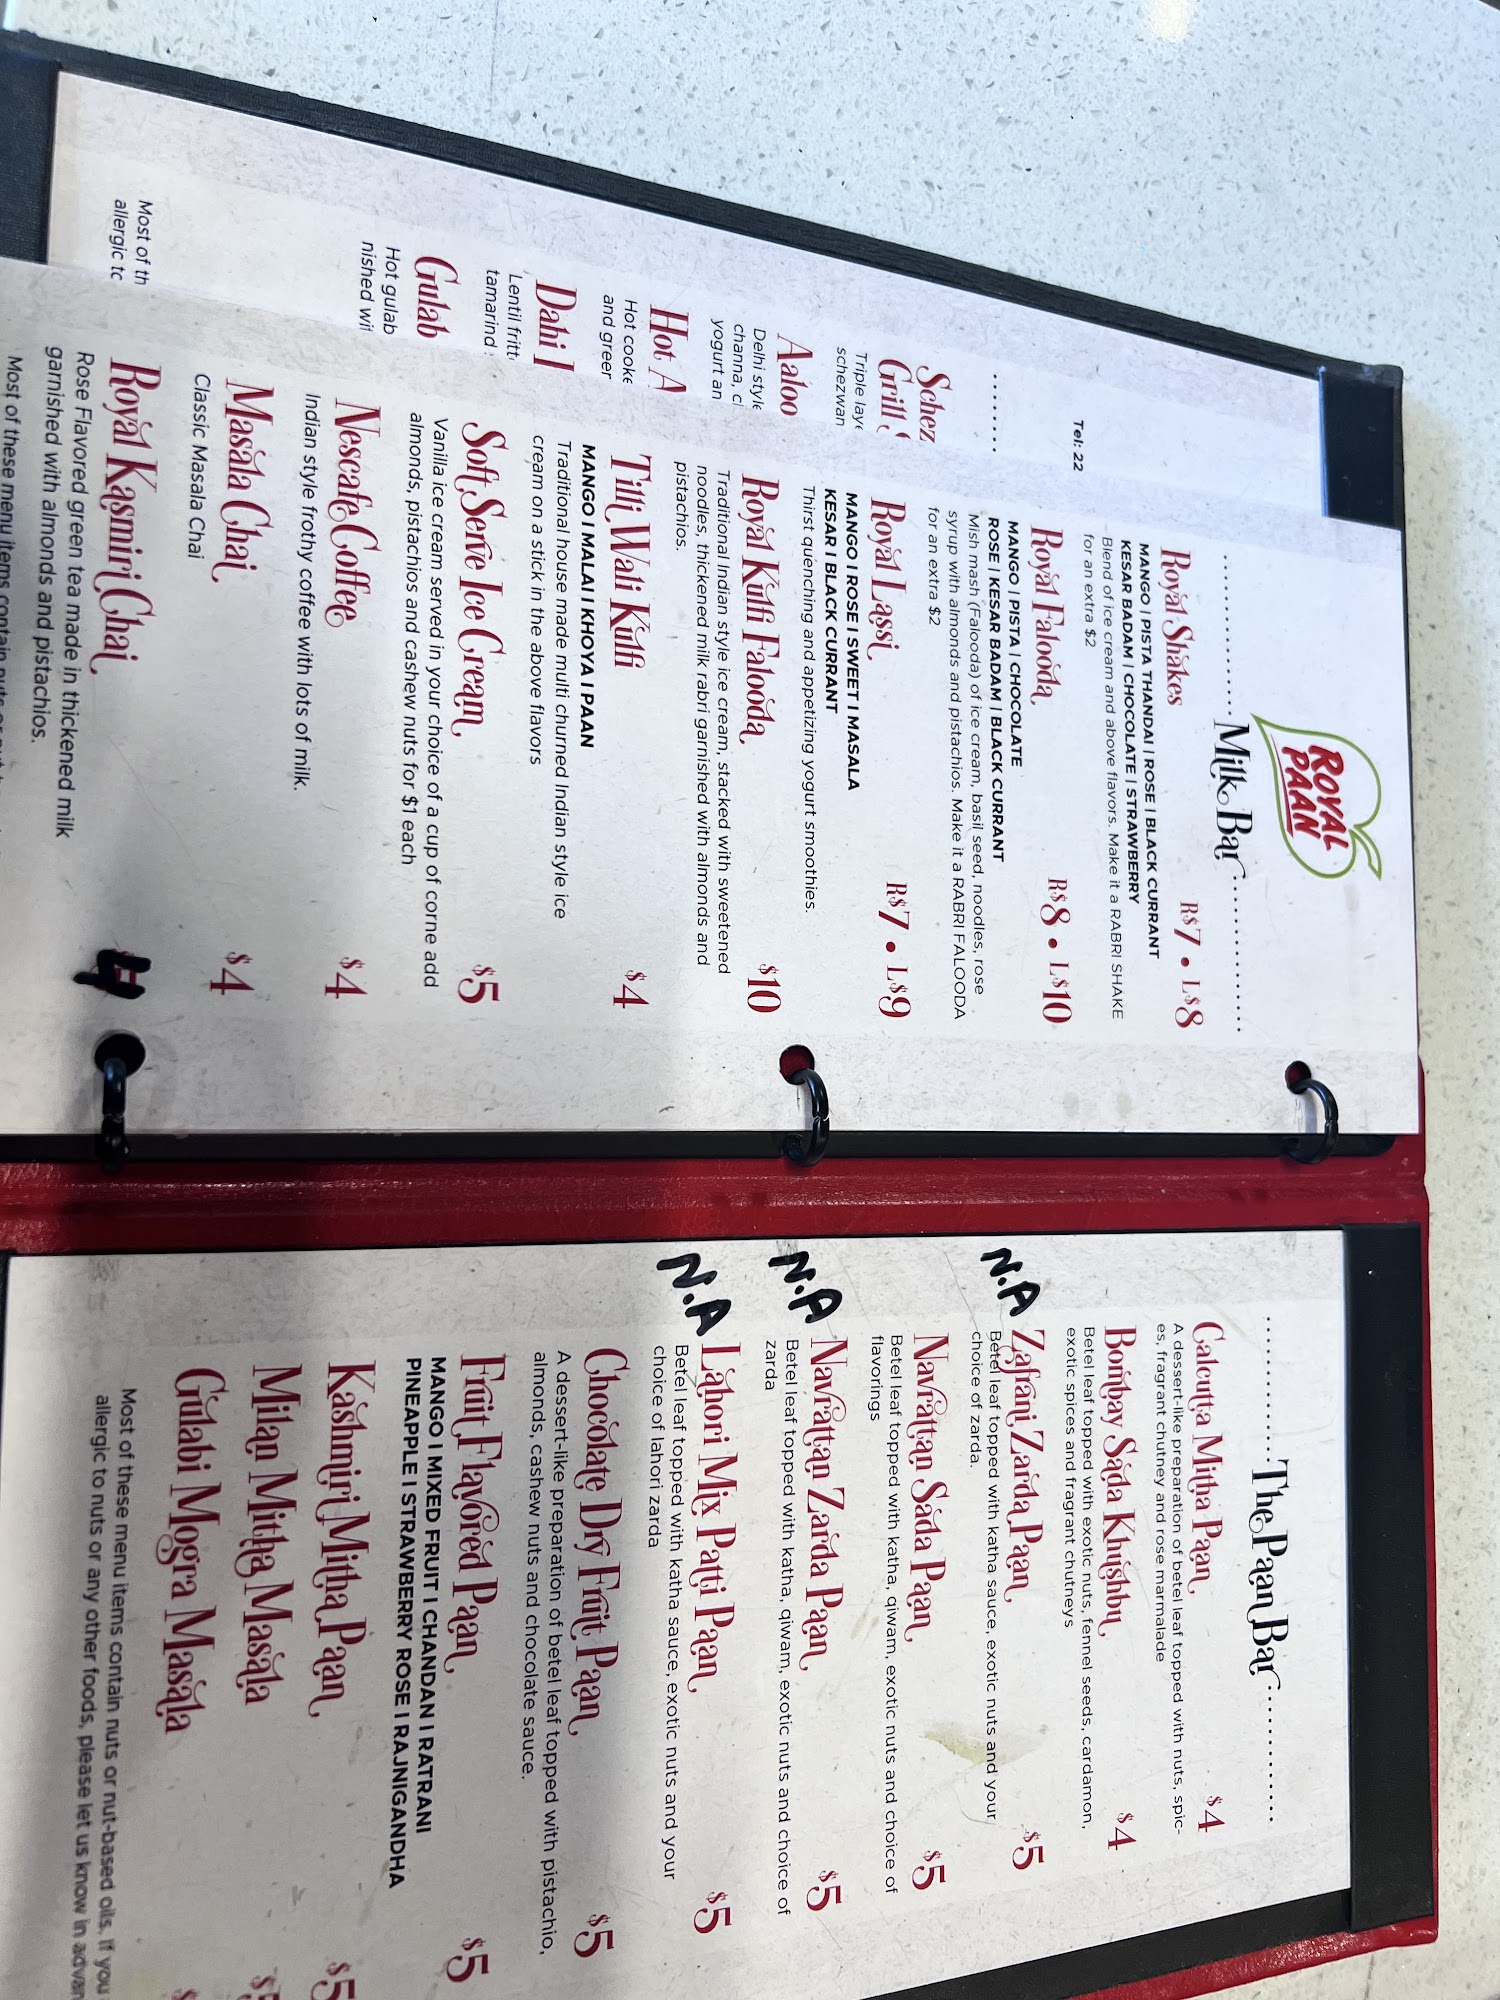 ROYAL
PAAN
Milk Bar
Royal Shakes R$7 • L$8
MANGO | PISTA THANDAI | ROSE | BLACK CURRANT
KESAR BADAM | CHOCOLATE | STRAWBERRY
Blend of ice cream and above flavors. Make it a RABRI SHAKE
for an extra $2
Royal Falooda R$8 • L$10
MANGO | PISTA | CHOCOLATE
ROSE | KESAR BADAM | BLACK CURRANT
Mish mash (Falooda) of ice cream, basil seed, noodles, rose
syrup with almonds and pistachios. Make it a RABRI FALOODA
for an extra $2
Royal Lassi R$7 • L$9
MANGO | ROSE | SWEET | MASALA
KESAR | BLACK CURRANT
Thirst quenching and appetizing yogurt smoothies.
Royal Kulfi Falooda $10
Traditional Indian style ice cream, stacked with sweetened
noodles, thickened milk rabri garnished with almonds and
pistachios.
Tilli Wali Kulfi $4
MANGO | MALAI | KHOYA | PAAN
Traditional house made multi churned Indian style ice
cream on a stick in the above flavors
Soft Serve Ice Cream $5
Vanilla ice cream served in your choice of a cup of corne add
almonds, pistachios and cashew nuts for $1 each
Nescafe Coffee $4
Indian style frothy coffee with lots of milk.
Masala Chai $4
Classic Masala Chai
Royal Kasmiri Chai 4
Rose Flavored green tea made in thickened milk
garnished with almonds and pistachios.
Most of these menu items contain nuts or
Tel: 22
Schez
Grill S
Triple laye
schezwan
Aaloo
Delhi style
channa, cl
yogurt an
Hot A
Hot cooke
and greer
Dahi
Lentil fritt
tamarind
Gulab
Hot gulab
nished wit
Most of th
allergic to
The Paan Bar
Calcutta Mitha Paan $4
A dessert-like preparation of betel leaf topped with nuts, spic-
es, fragrant chutney and rose marmalade
Bombay Sada Khushbu $4
Betel leaf topped with exotic nuts, fennel seeds, cardamon,
exotic spices and fragrant chutneys
N.A Zafrani Zarda Paan $5
Betel leaf topped with katha sauce, exotic nuts and your
choice of zarda.
Navrattan Sada Paan $5
Betel leaf topped with katha, qiwam, exotic nuts and choice of
flavorings
N.A Navrattan Zarda Paan $5
Betel leaf topped with katha, qiwam, exotic nuts and choice of
zarda
N.A Lahori Mix Patti Paan $5
Betel leaf topped with katha sauce, exotic nuts and your
choice of lahori zarda
Chocolate Dry Fruit Paan $5
A dessert-like preparation of betel leaf topped with pistachio,
almonds, cashew nuts and chocolate sauce.
Fruit Flavored Paan $5
MANGO | MIXED FRUIT | CHANDAN | RATRANI
PINEAPPLE | STRAWBERRY ROSE | RAJNIGANDHA
Kashmiri Mitha Paan $5
Milan Mitha Masala $5
Gulabi Mogra Masala $
Most of these menu items contain nuts or nut-based oils. If you
allergic to nuts or any other foods, please let us know in advan